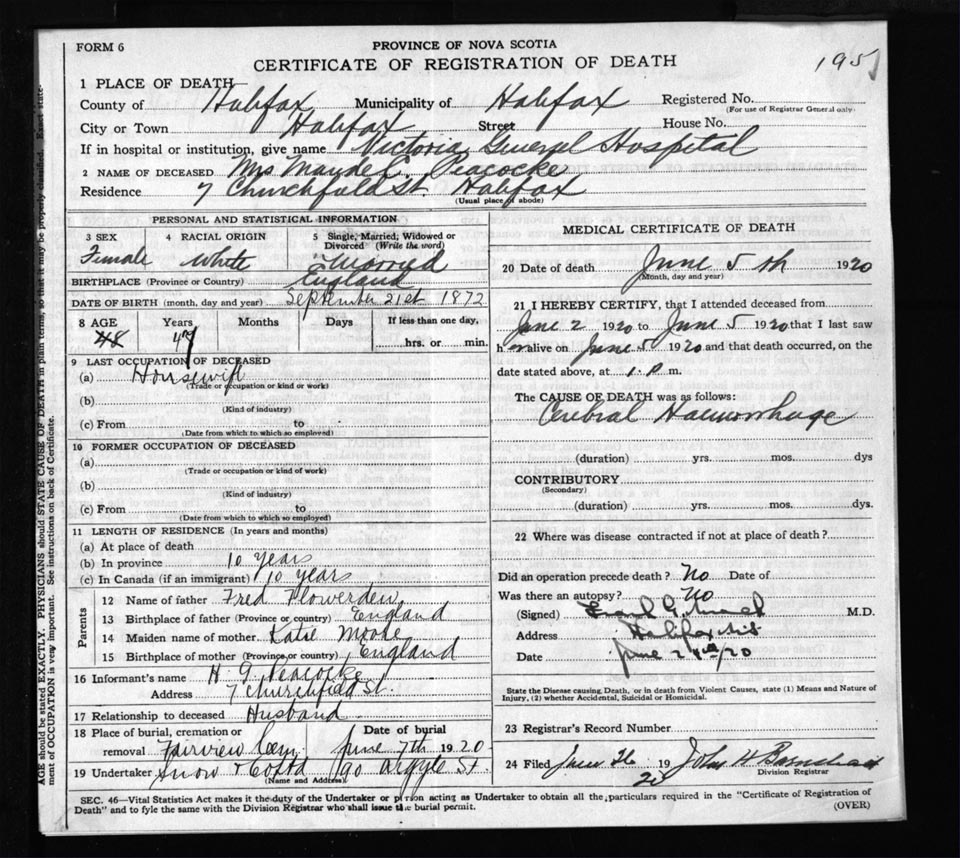 FORM 6
PROVINCE OF NOVA SCOTIA
CERTIFICATE OF REGISTRATION OF DEATH
195
1 PLACE OF DEATH
County of Halifax Municipality of Halifax Registered No.
(For use of Registrar General only
City or Town Halifax Street House No.
If in hospital or institution, give name Victoria General Hospital
2 NAME OF DECEASED Mrs Maude C. Peacocke
Residence 7 Churchfield St. Halifax
(Usual place of abode)
PERSONAL AND STATISTICAL INFORMATION
3 SEX 4 RACIAL ORIGIN 5 Single, Married, Widowed or Divorced (Write the word)
Female White Married
BIRTHPLACE (Province or Country) England
DATE OF BIRTH (month, day and year) September 21st 1872
8 AGE Years Months Days If less than one day,
48 47 hrs. or min.
9 LAST OCCUPATION OF DECEASED
(a) Housewife
(Trade or occupation or kind or work)
(b)
(Kind of industry)
(c) From to
(Date from which to which so employed)
10 FORMER OCCUPATION OF DECEASED
(a)
(Trade or occupation or kind of work)
(b)
(Kind of industry)
(c) From to
(Date from which to which so employed)
11 LENGTH OF RESIDENCE (In years and months)
(a) At place of death
(b) In province 10 years
(c) In Canada (if an immigrant) 10 years
Parents
12 Name of father Fred Flowerdew
13 Birthplace of father (Province or country) England
14 Maiden name of mother Katie Moore
15 Birthplace of mother (Province or country) England
16 Informant's name H. G. Peacocke
Address 7 Churchfield St.
17 Relationship to deceased Husband
18 Place of burial, cremation or Date of burial
removal Fairview Cem June 7th 1920
19 Undertaker Snow & Co Ltd 90 Argyle St.
(Name and Address)
MEDICAL CERTIFICATE OF DEATH
20 Date of death June 5 th 1920
(Month, day and year)
21 I HEREBY CERTIFY, that I attended deceased from
June 2 1920 to June 5 1920 that I last saw
h er alive on June 5 1920 and that death occurred, on the
date stated above, at 1. P m.
The CAUSE OF DEATH was as follows:
Cerebral Haemorrhage
(duration) yrs. mos. dys
CONTRIBUTORY
(Secondary)
(duration) yrs. mos. dys.
22 Where was disease contracted if not at place of death?
Did an operation precede death? No Date of
Was there an autopsy? No
(Signed) M.D.
Address Halifax
Date June 20
State the Disease causing Death, or in death from Violent Causes, state (1) Means and Nature of
Injury, (2) whether Accidental, Suicidal or Homicidal.
23 Registrar's Record Number
24 Filed June 19 20 John H Barnstead
Division Registrar
SEC. 46—Vital Statistics Act makes it the duty of the Undertaker or person acting as Undertaker to obtain all the particulars required in the "Certificate of Registration of
Death" and to fyle the same with the Division Registrar who shall issue the burial permit.
(OVER)
AGE should be stated EXACTLY. PHYSICIANS should STATE CAUSE OF DEATH in plain terms, so that it may be properly classified. Exact state-
ment of OCCUPATION is very important. See instructions on back of Certificate.